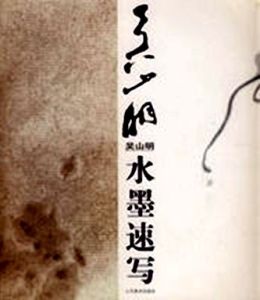 吴山明
吴山明
水墨速写